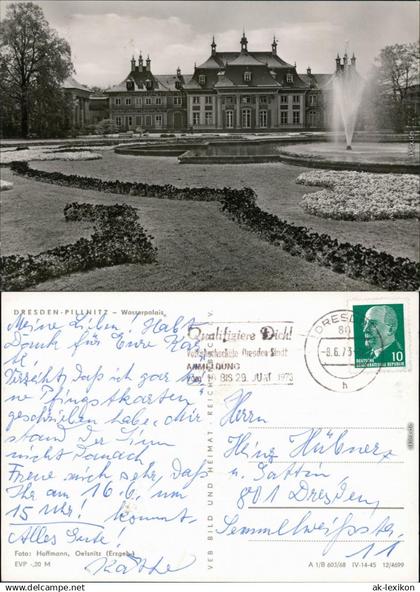 DRESDEN-PILLNITZ - Wasserpalais
Meine Lieben! Habt
Dank für Eure Karte
Verzeiht, daß ich gar kei-
ne Pfingstkarten
geschrieben habe, mir
stand der Sinn
nicht danach
Freue mich sehr, daß
Ihr am 16.6. um
15 Uhr! kommt.
Alles Gute!
Käthe
Foto: Hoffmann, Oelsnitz (Erzgeb.)
EVP -,20 M
VEB BILD UND HEIMAT REICHENBACH I. V.
Qualifiziere Dich!
Volkshochschule Dresden Stadt
ANMELDUNG
BIS 29. JUNI 1973
DRESDEN
80
-8.6.73
h
10
DEUTSCHE DEMOKRATISCHE REPUBLIK
Herrn
Heinz Hübner
u. Gattin
801 Dresden
Semmelweißstr.
11
A 1/B 603/68 IV-14-45 12/4699
© ak-lexikon.de